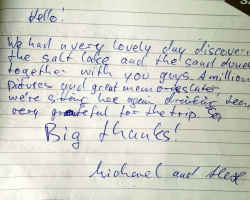 Hello!
We had a very lovely day discover
the salt lake and the sand dunes
together with you guys. A million
pictures and great memories later,
we're sitting here again drinking beer,
very grateful for the trip.
Big thanks!
Michael and